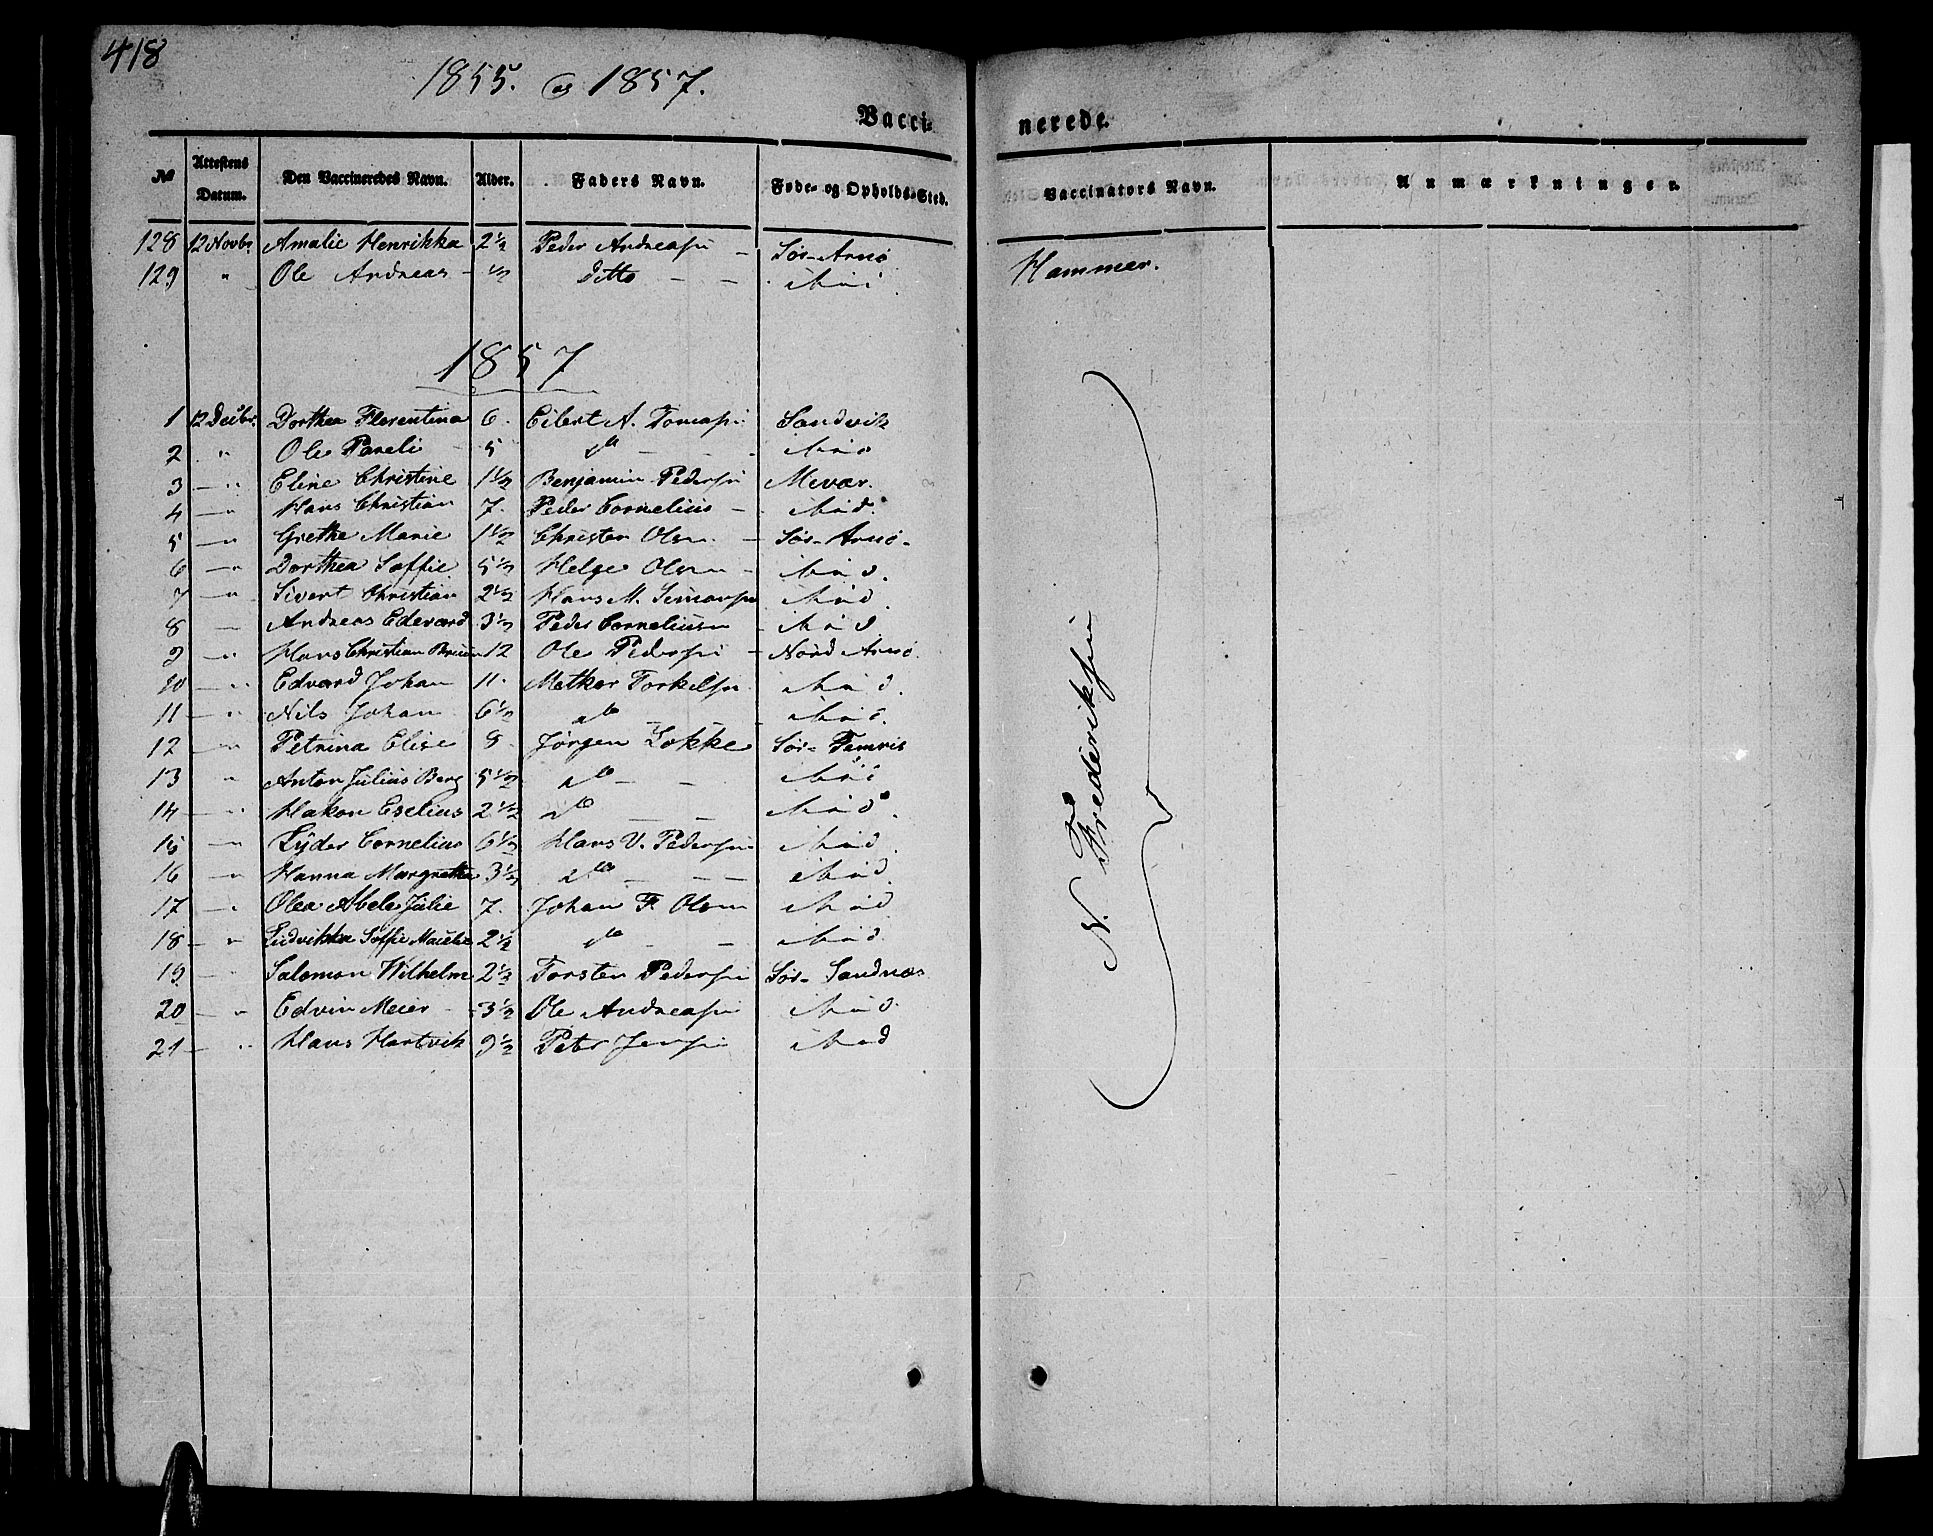 418
1855. og 1857.
Vacci- nerede.
No Attestens Datum. Den Vaccineredes Navn. Alder. Faders Navn. Føde- og Opholds-Sted. Vaccinators Navn. Anmærkninger.
128 12 Novbr Amalie Henrikka 2½ Peder Andreasen - Sør-Arnø Hammer.
129 " Ole Andreas - ½ Ditto - - ibid.
1857
1 12 Decbr. Dorthea Florentina 6. Eilert A. Tomasen Sandvik
2 " Ole Pareli - 5 do - - ibid
3 - " Eline Christine 1½ Benjamin Pedersen Mevær.
4 - " Hans Christian 7. Peder Cornelius - ibid.
5 - " Grethe Marie 1½ Christen Olsen - Sør-Arnø-
6 - " Dorthea Soffie 5½ Helge Olsen - ibid.
7 - " Sivert Christian 2½ Hans M. Simonsen ibid.
8 - Andreas Edevard 3½ Peder Corneliusen - ibid
9 - " Hans Christian 12 Ole Pedersen - Nord Arnø.
10 - " Edvard Johan 11. Metkor Torkelsen ibid.
11 - " Nils Johan 6½ do - - ibid.
12 - " Petrina Elise 8. Jørgen Løkke Sør-
13 " Anton Julius Berg 5½ do - - ibid
14 - " Hakon Eselius 2½ do - - ibid.
15 - " Lyder Cornelius 6½ Hans V. Pedersen ibid.
16 " Hanna Margretha 3½ do - - - ibid.
17 - " Olea Abel Julie 7. Johan F. Olsen ibid
18 - " Ludvikka Soffie 2½ do - - ibid.
19 - " Salomon Wilhelm 2½ Torsten Pedersen Sør-Sandnæs
20 - " Edvin Meier - 3½ Ole Andreasen ibid.
21 - " Hans Hartvik 9½ Peter Jensen ibid
N. Frederiksen